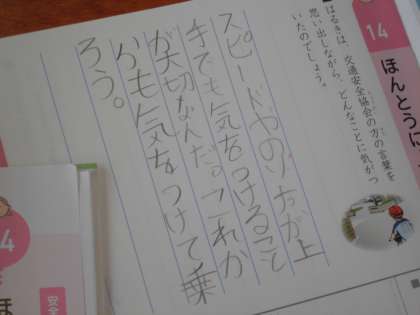 14 ほんとうに
はるきは、交通安全協会の方の言葉を
思い出しながら、どんなことに気がつ
いたのでしょう。
スピードやのり方が上
手でも気をつけること
が大切なんだ。これか
らも気をつけて乗
ろう。
4
ほ
安全